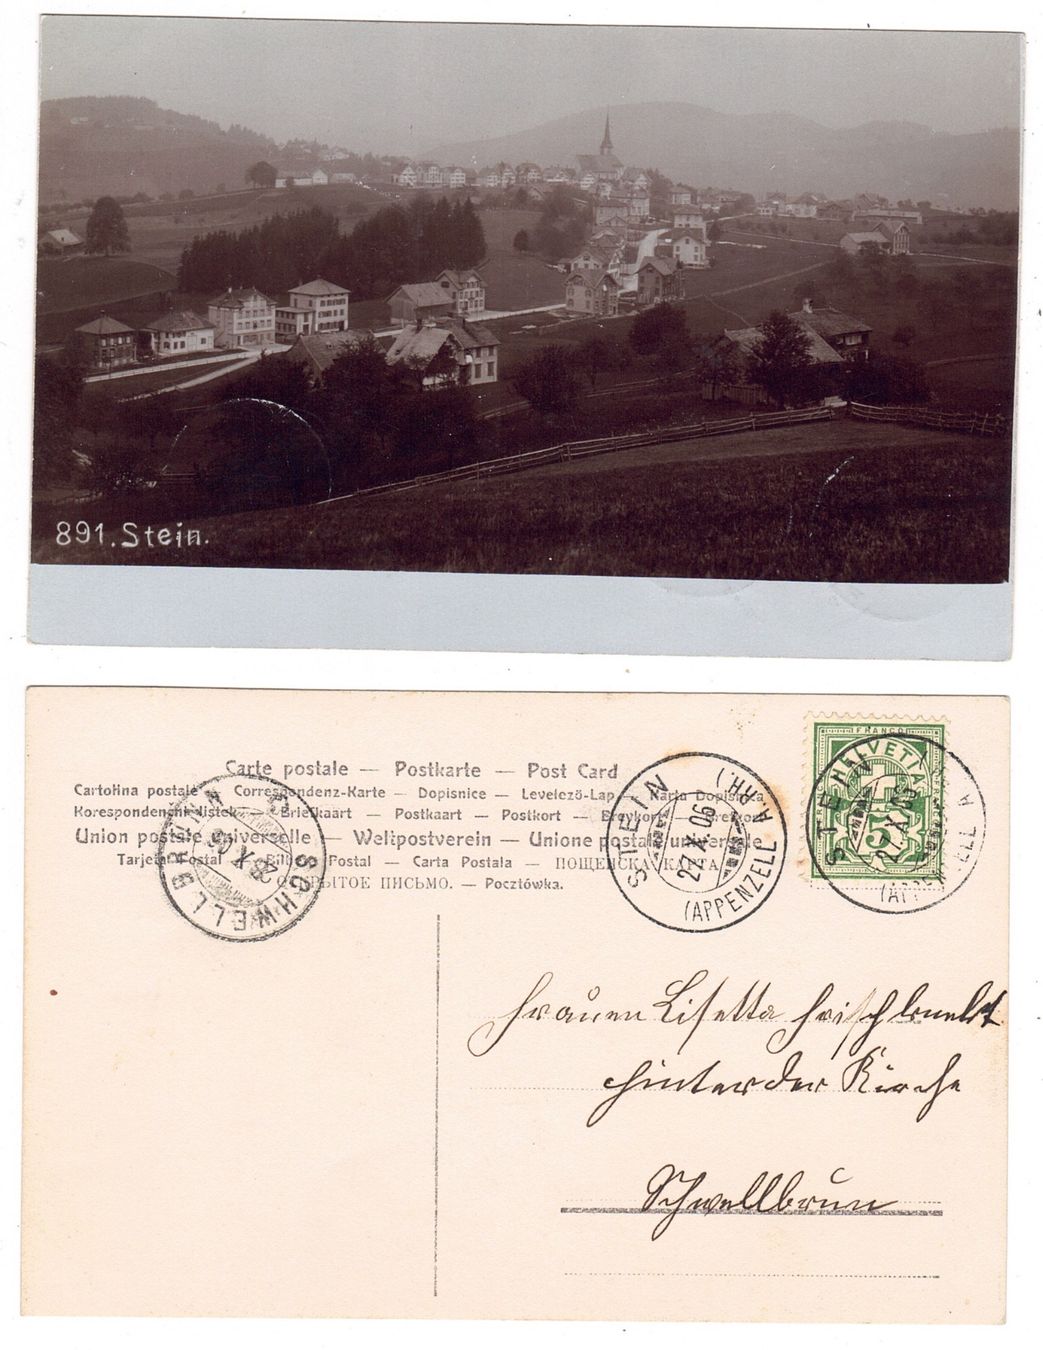 891. Stein.
Carte postale — Postkarte — Post Card
Cartolina postale — Correspondenz-Karte — Dopisnice — Levelező-Lap — Karta Dopisnica
Korespondenční lístek — Briefkaart — Postkaart — Postkort — Brevkort —
Union postale universelle — Weltpostverein — Unione postale universale
Tarjeta Postal — Postal — Carta Postala — ПОЩЕНСКА КАРТА
ОТКРЫТОЕ ПИСЬМО. — Pocztówka.
SCHWELLBRUNN
28. X
STEIN
27. X. 06
(APPENZELL A. RH.)
FRANCO
HELVETIA
5
STEIN
27. X. 06
(APPENZELL A
Frauen Lisetta Frischknecht
hinter der Kirche
Schwellbrun